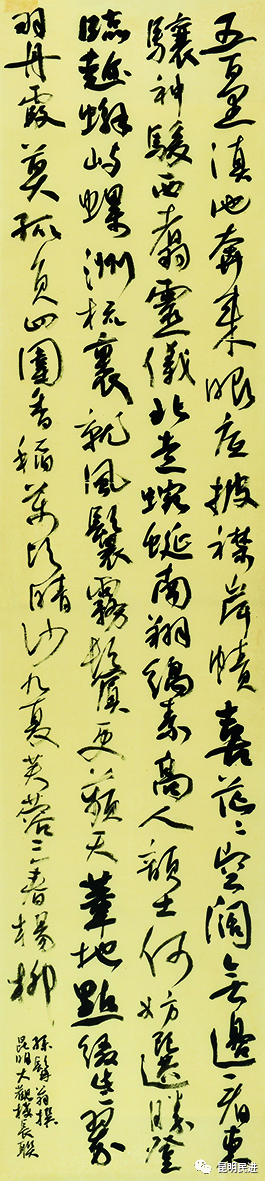 五百里滇池奔来眼底披襟岸幘喜茫々空闊無邊看東
驤神駿西翥靈儀北走蜿蜒南翔縞素高人韻士何妨選勝登
臨趁蠏嶼螺洲梳裹就風鬟霧鬢更蘋天葦地點綴些翠
羽丹霞莫孤負四圍香稻萬頃晴沙九夏芙蓉三春楊柳
孫髯翁撰
昆明大觀樓長聯
昆明民进